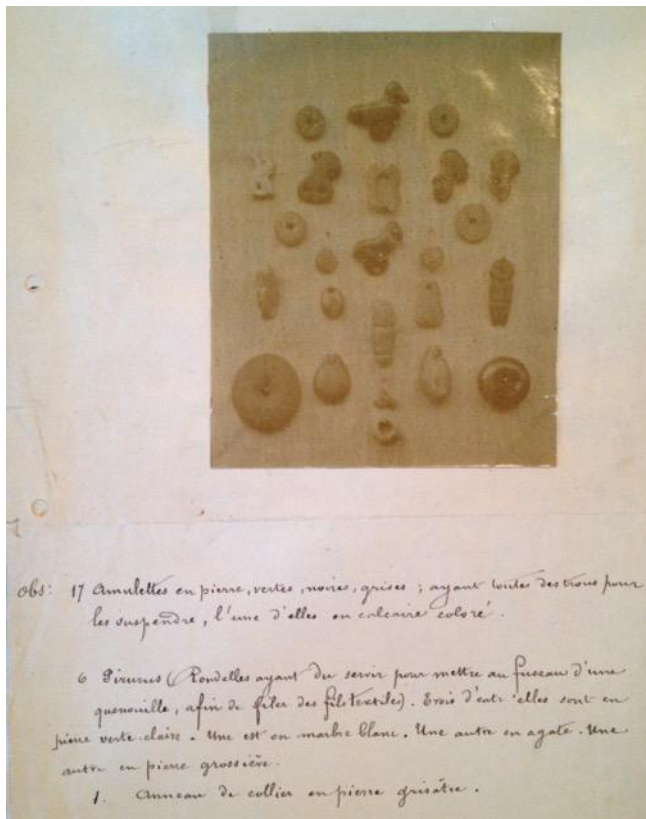 Obs: 17 Amulettes en pierre, vertes, noires, grises ; ayant toutes des trous pour
les suspendre, l'une d'elles en calcaire coloré.
6 Piruros (Rondelles ayant du servir pour mettre au fuseau d'une
quenouille, afin de filer des fils textiles). Trois d'entr'elles sont en
pierre verte claire. Une est en marbre blanc. Une autre en agate. Une
autre en pierre grossière.
1. Anneau de collier en pierre grisâtre.